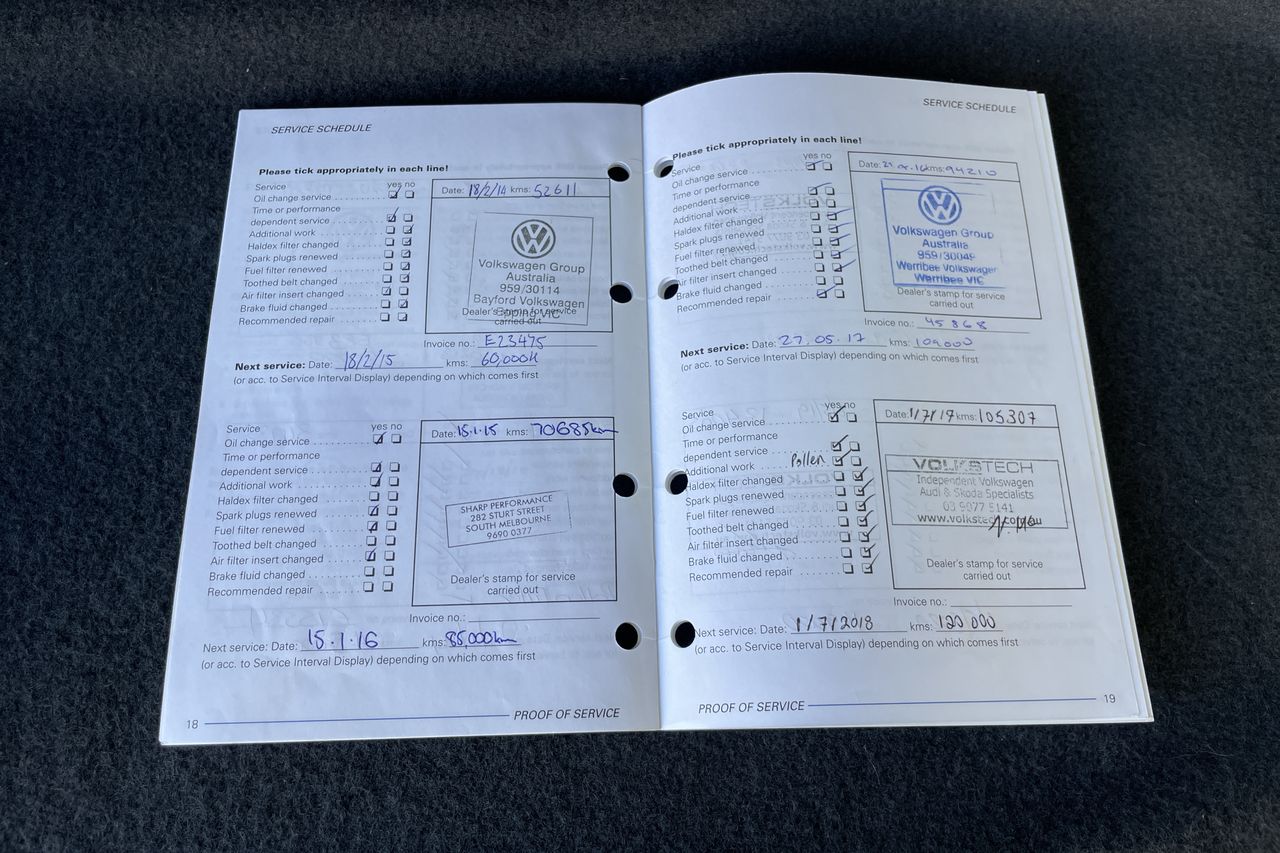 SERVICE SCHEDULE
Please tick appropriately in each line!
yes no
Service
Oil change service
Time or performance
dependent service
Additional work
Haldex filter changed
Spark plugs renewed
Fuel filter renewed
Toothed belt changed
Air filter insert changed
Brake fluid changed
Recommended repair
Date: 18/2/14 kms: 52611
Volkswagen Group
Australia
959/30114
Bayford Volkswagen
Epping VIC
Dealer's stamp for service
carried out
Invoice no.: E23475
Next service: Date: 18/2/15 kms: 60,000k
(or acc. to Service Interval Display) depending on which comes first
yes no
Service
Oil change service
Time or performance
dependent service
Additional work
Haldex filter changed
Spark plugs renewed
Fuel filter renewed
Toothed belt changed
Air filter insert changed
Brake fluid changed
Recommended repair
Date: 15.1.15 kms: 70685km
SHARP PERFORMANCE
282 STURT STREET
SOUTH MELBOURNE
9690 0377
Dealer's stamp for service
carried out
Invoice no.:
Next service: Date: 15.1.16 kms: 85,000km
(or acc. to Service Interval Display) depending on which comes first
18 PROOF OF SERVICE
SERVICE SCHEDULE
Please tick appropriately in each line!
yes no
Service
Oil change service
Time or performance
dependent service
Additional work
Haldex filter changed
Spark plugs renewed
Fuel filter renewed
Toothed belt changed
Air filter insert changed
Brake fluid changed
Recommended repair
Date: kms: 94210
Volkswagen Group
Australia
959/30049
Werribee Volkswagen
Werribee VIC
Dealer's stamp for service
carried out
Invoice no.: 45868
Next service: Date: 27.05.17 kms: 109000
(or acc. to Service Interval Display) depending on which comes first
yes no
Service
Oil change service
Time or performance
dependent service
Additional work Pollen
Haldex filter changed
Spark plugs renewed
Fuel filter renewed
Toothed belt changed
Air filter insert changed
Brake fluid changed
Recommended repair
Date: 1/7/17 kms: 105307
VOLKSTECH
Independent Volkswagen
Audi & Skoda Specialists
03 9077 5141
www.volkstech.com.au
Dealer's stamp for service
carried out
Invoice no.:
Next service: Date: 1/7/2018 kms: 120 000
(or acc. to Service Interval Display) depending on which comes first
PROOF OF SERVICE 19